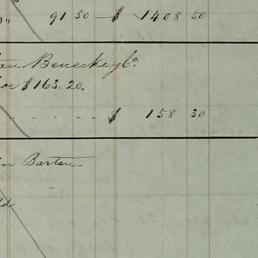 " 91 50 — $ 1408 50
Benecke & Co.
for $163.20.
$ 158 30
Barton